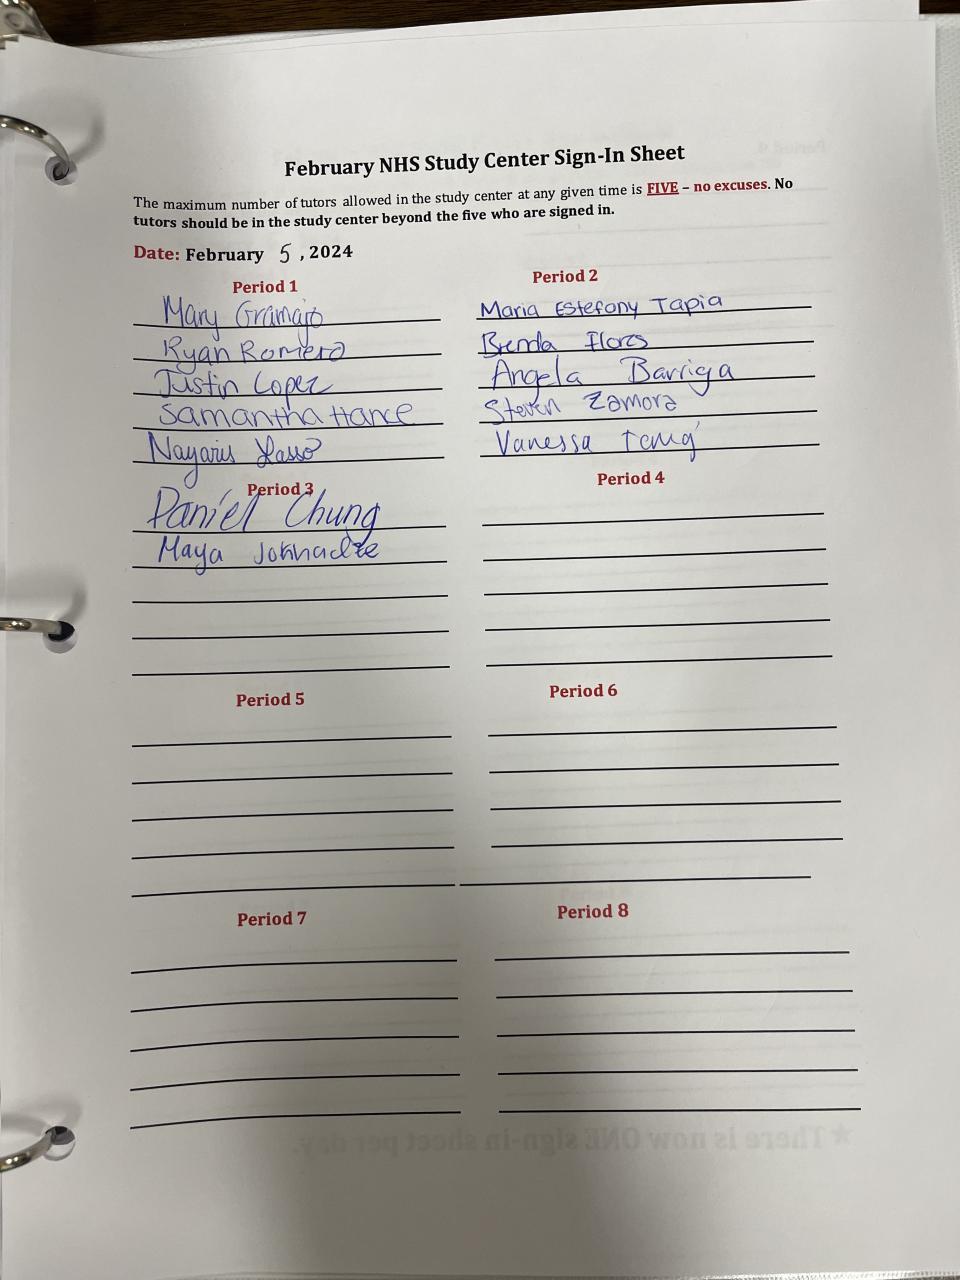 February NHS Study Center Sign-In Sheet
The maximum number of tutors allowed in the study center at any given time is FIVE – no excuses. No
tutors should be in the study center beyond the five who are signed in.
Date: February 5, 2024
Period 1
Mary Gramajo
Ryan Romero
Justin Lopez
Samantha Hance
Nayaris Lasso
Period 2
Maria Estefony Tapia
Brenda Flores
Angela Barriga
Steven Zamora
Vanessa
Period 3
Daniel Chung
Maya
Period 4
Period 5
Period 6
Period 7
Period 8
★ There is now ONE sign-in sheet per day.